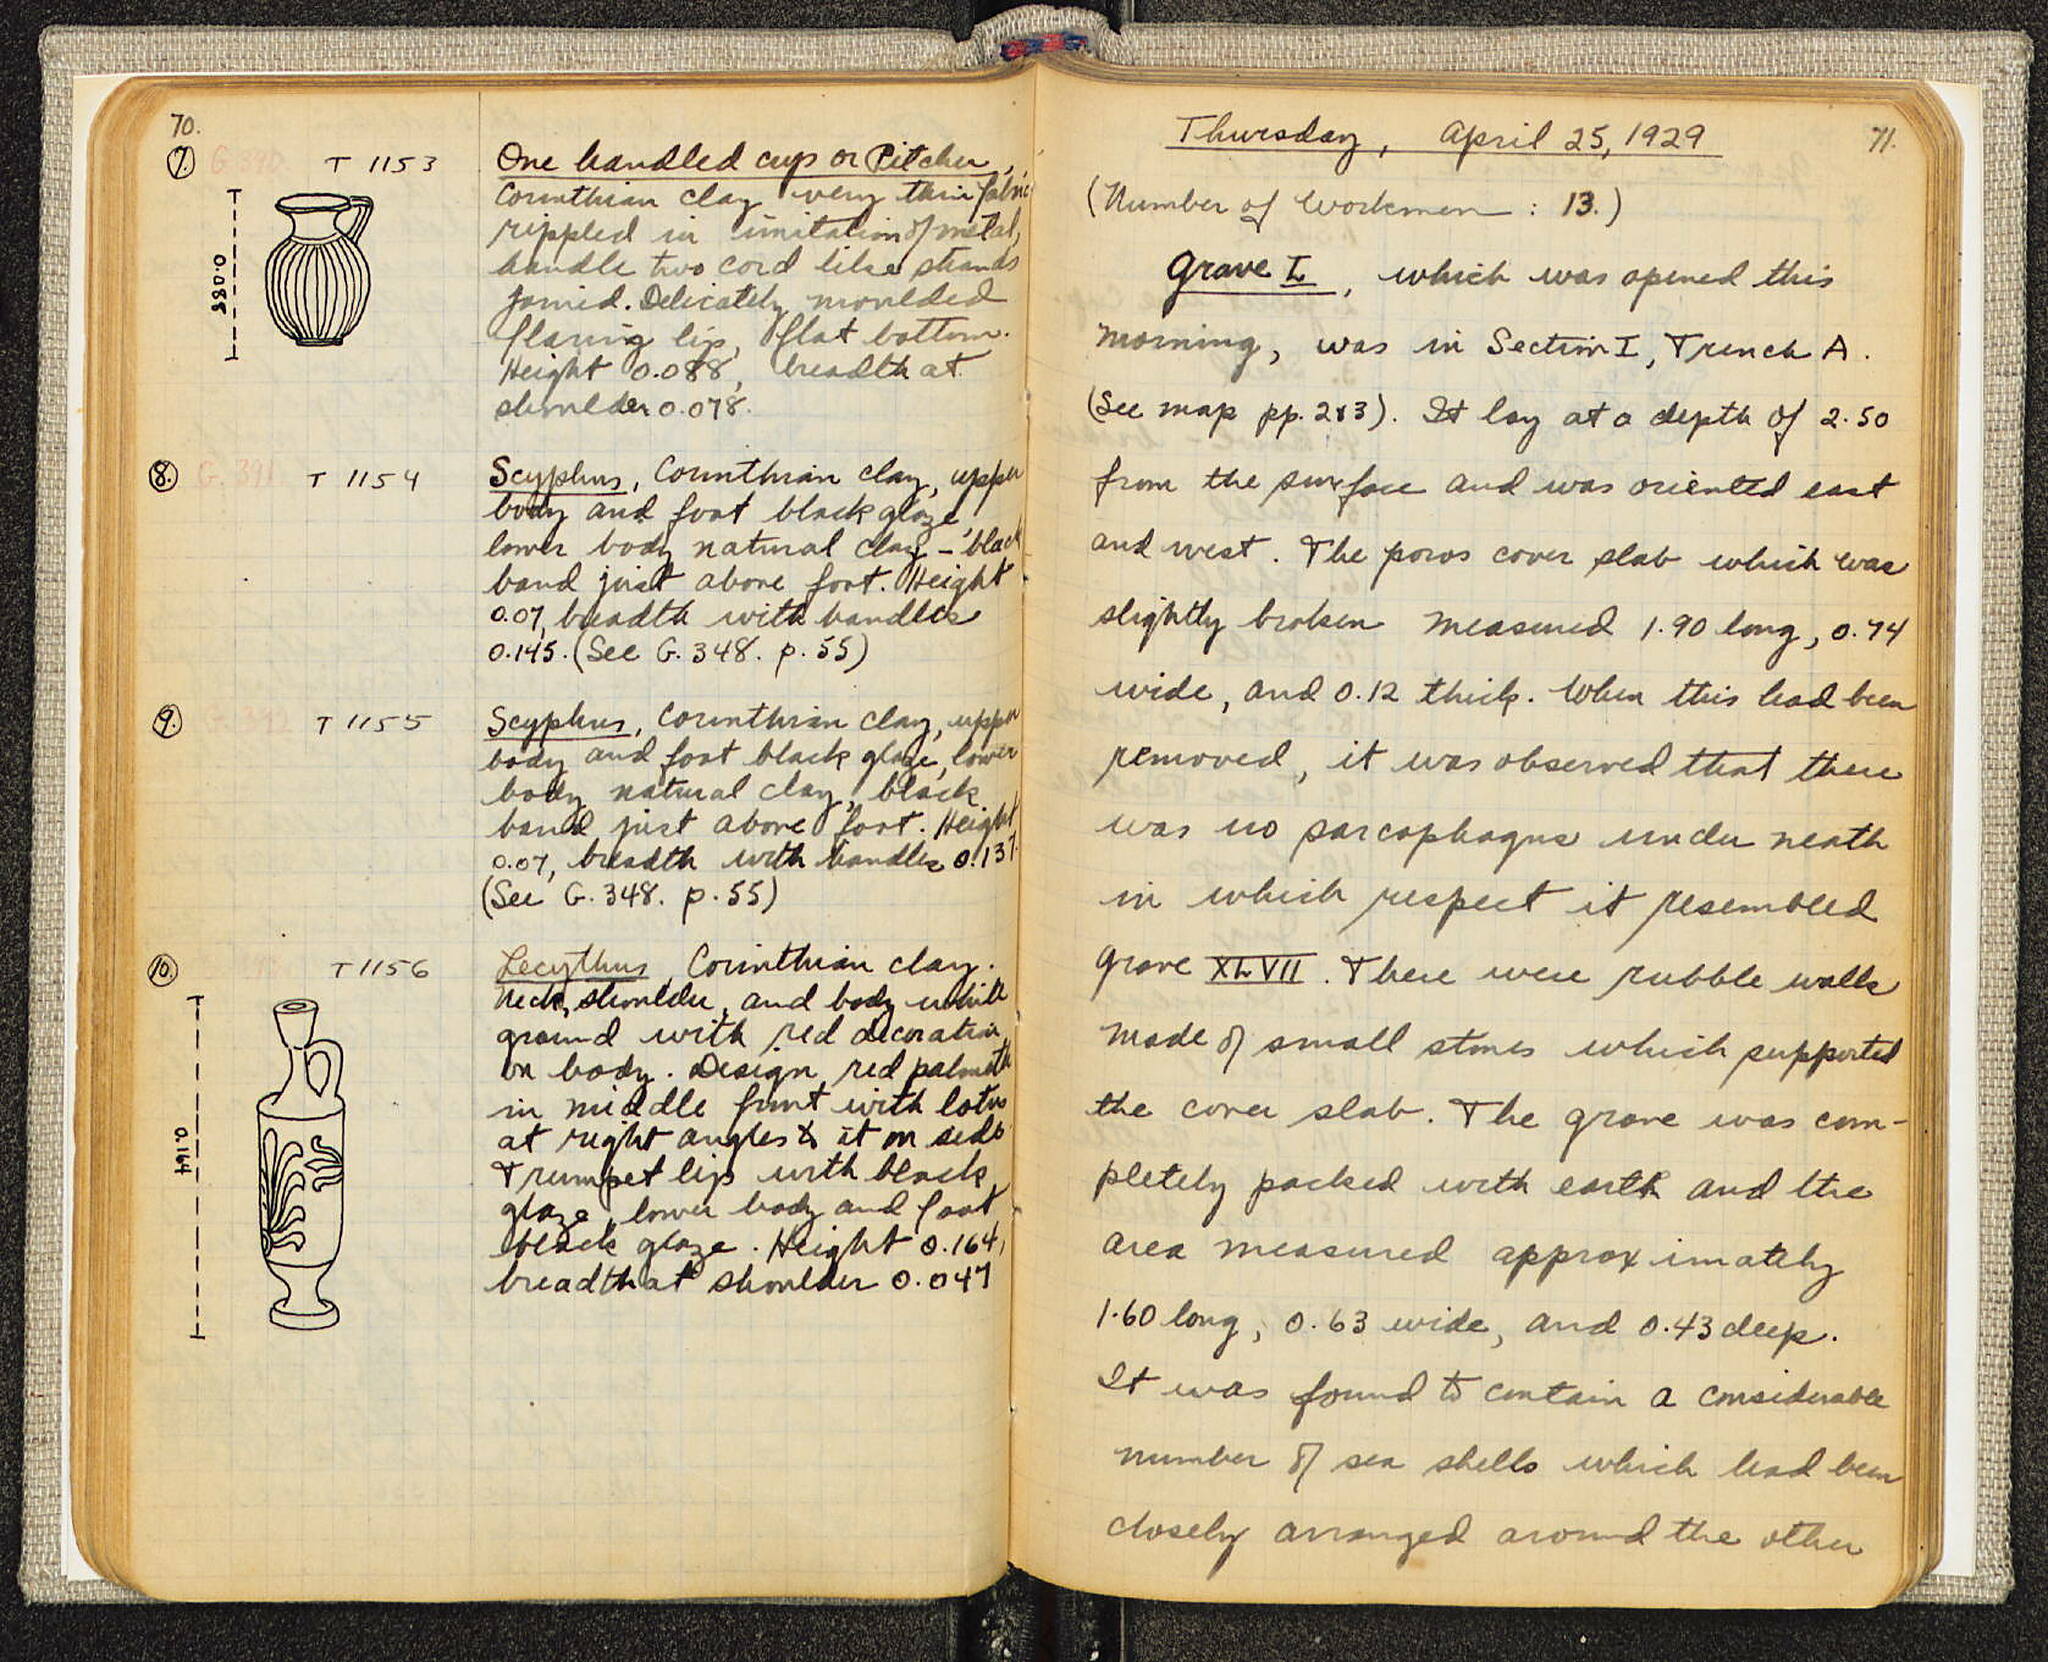 70.
7. G.390 T 1153
One handled cup or Pitcher,
Corinthian clay very thin fabric
rippled in imitation of metal,
handle two cord like strands
joined. Delicately moulded
flaring lip, flat bottom.
Height 0.088, breadth at
shoulder 0.078.
0.088
8. G.391 T 1154
Scyphus, Corinthian clay, upper
body and foot black glaze,
lower body natural clay - black
band just above foot. Height
0.07, breadth with handles
0.145. (See G. 348. p. 55)
9. G.392 T 1155
Scyphus, Corinthian clay, upper
body and foot black glaze, lower
body natural clay, black
band just above foot. Height
0.07, breadth with handles 0.137.
(See G. 348. p. 55)
10. T 1156
Lecythus, Corinthian clay.
Neck, shoulder, and body white
ground with red decoration
on body. Design red palmette
in middle front with lotus
at right angles to it on side
Trumpet lip with black
glaze, lower body and foot
black glaze. Height 0.164,
breadth at shoulder 0.047
0.164
71.
Thursday, April 25, 1929
(Number of Workmen : 13.)
Grave L, which was opened this
morning, was in Section I, Trench A.
(See map pp. 2&3). It lay at a depth of 2.50
from the surface and was oriented east
and west. The poros cover slab which was
slightly broken measured 1.90 long, 0.74
wide, and 0.12 thick. When this had been
removed, it was observed that there
was no sarcophagus under neath
in which respect it resembled
grave XLVII. There were rubble walls
made of small stones which supported
the cover slab. The grave was com-
pletely packed with earth and the
area measured approximately
1.60 long, 0.63 wide, and 0.43 deep.
It was found to contain a considerable
number of sea shells which had been
closely arranged around the other